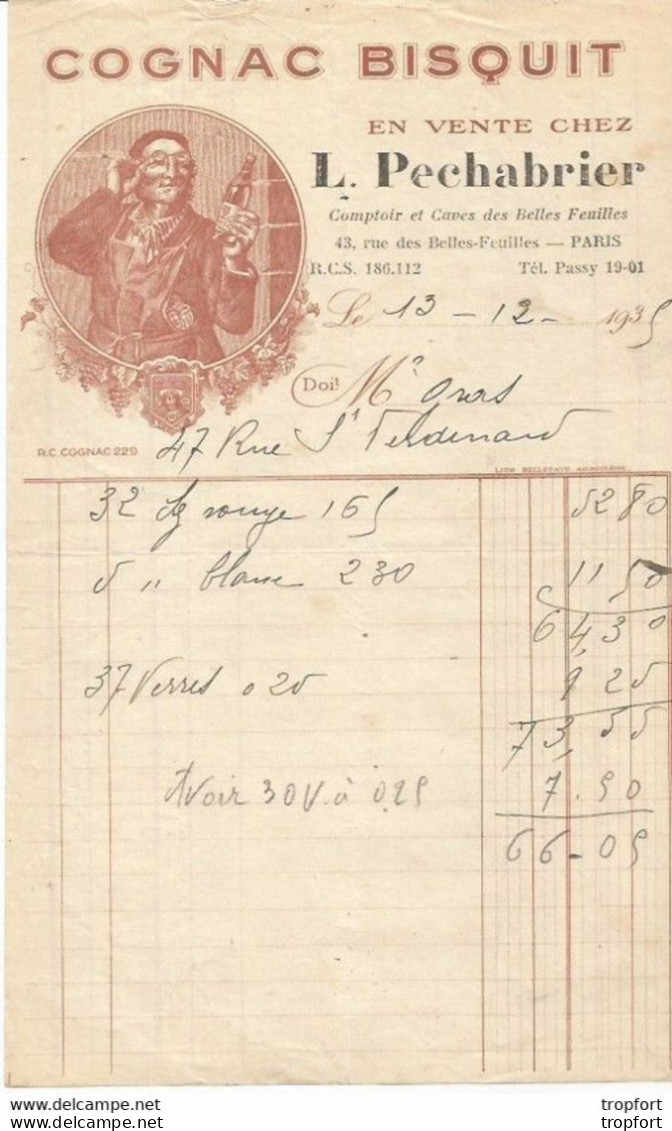 COGNAC BISQUIT
EN VENTE CHEZ
L. Pechabrier
Comptoir et Caves des Belles Feuilles
43, rue des Belles-Feuilles — PARIS
R.C.S. 186.112 Tél. Passy 19-01
Le 13 - 12 - 1935
Doit Mr
47 Rue St Ferdinand
R.C. COGNAC 229
32 rouge 165 5280
5 " blanc 230 1150
64,30
37 Verres 0 25 9 25
73,55
Avoir 30 V. à 0.25 7.50
66-05
www.delcampe.net
tropfort
tropfort